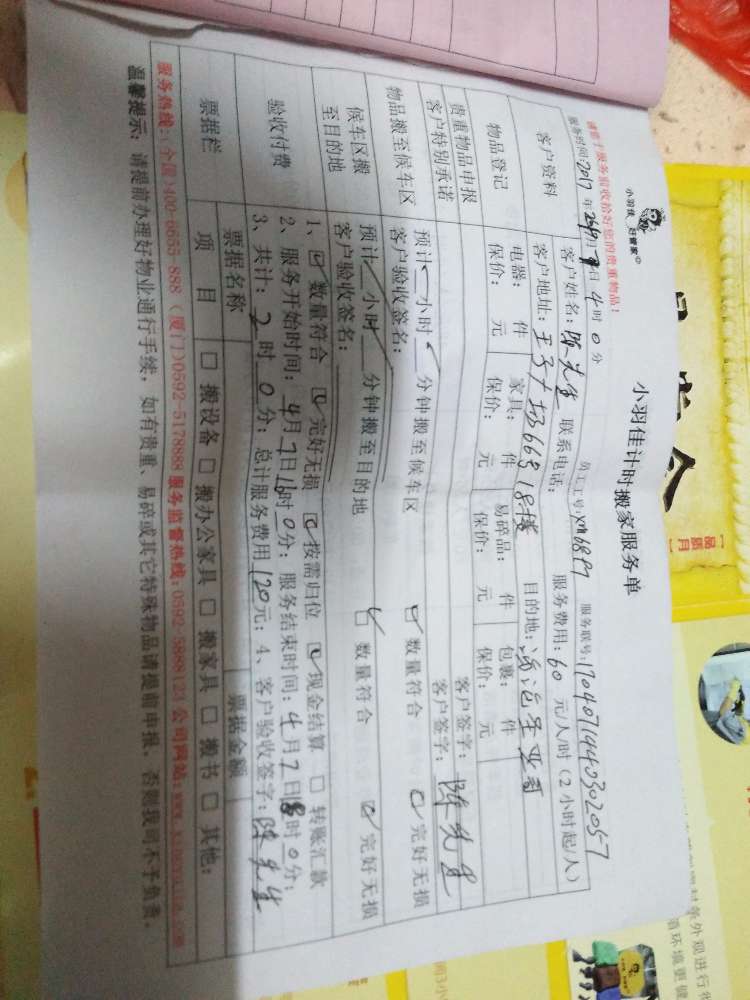 小羽佳计时搬家服务单
小羽佳 好管家
请您于服务前收拾好您的贵重物品!
员工工号: 服务联号:170407144030205 7
服务时间:2017年 4时0分
客户资料
客户姓名:陈先生 联系电话: 服务费用:60元/人时(2小时起/人)
客户地址:王子广场66号18楼 目的地:
物品登记
电器: 件 家具: 件 易碎品: 件 包裹: 件
保价: 元 保价: 元 保价: 元 保价: 元
贵重物品申报 客户签字:
客户特别承诺 客户签字:陈先生
物品搬至候车区
预计 小时 分钟搬至候车区 数量符合 完好无损
客户验收签名:
候车区搬至目的地
预计 小时 分钟搬至目的地 数量符合 完好无损
客户验收签名:
验收付费
1、数量符合 完好无损 按需归位 现金结算 转账汇款
2、服务开始时间:4月7日16时0分;服务结束时间:4月7日18时0分;
3、共计:2时0分;总计服务费用120元;4、客户验收签字:陈先生
票据栏
票据名称 票据金额
项目 搬设备 搬办公家具 搬家具 搬书 其他:
服务热线:(全国)400-6655 888 (厦门)0592-5178888 服务监督热线:0592-5888123 公司网站:
温馨提示:请提前办理好物业通行手续,如有贵重、易碎或其它特殊物品请提前申报,否则我司不予负责。